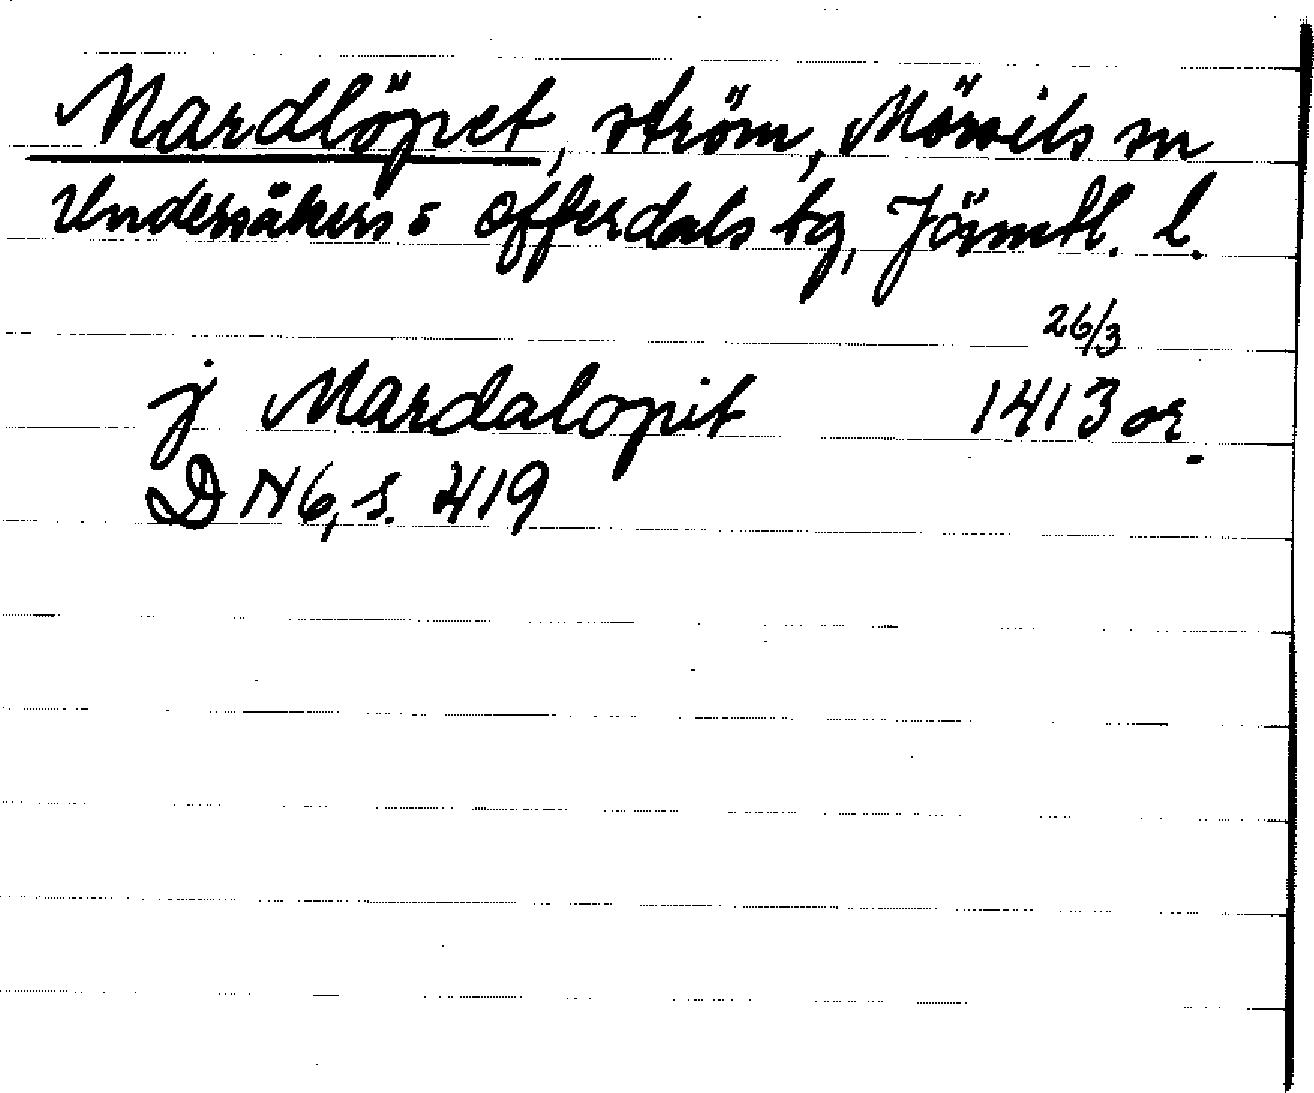 Mardlöpet, ström, Mörsils sn
Undersåkers o Offerdals tg, Jämtl. l.
26/3
j Mardalopit 1413 or.
DN 6, s. 419